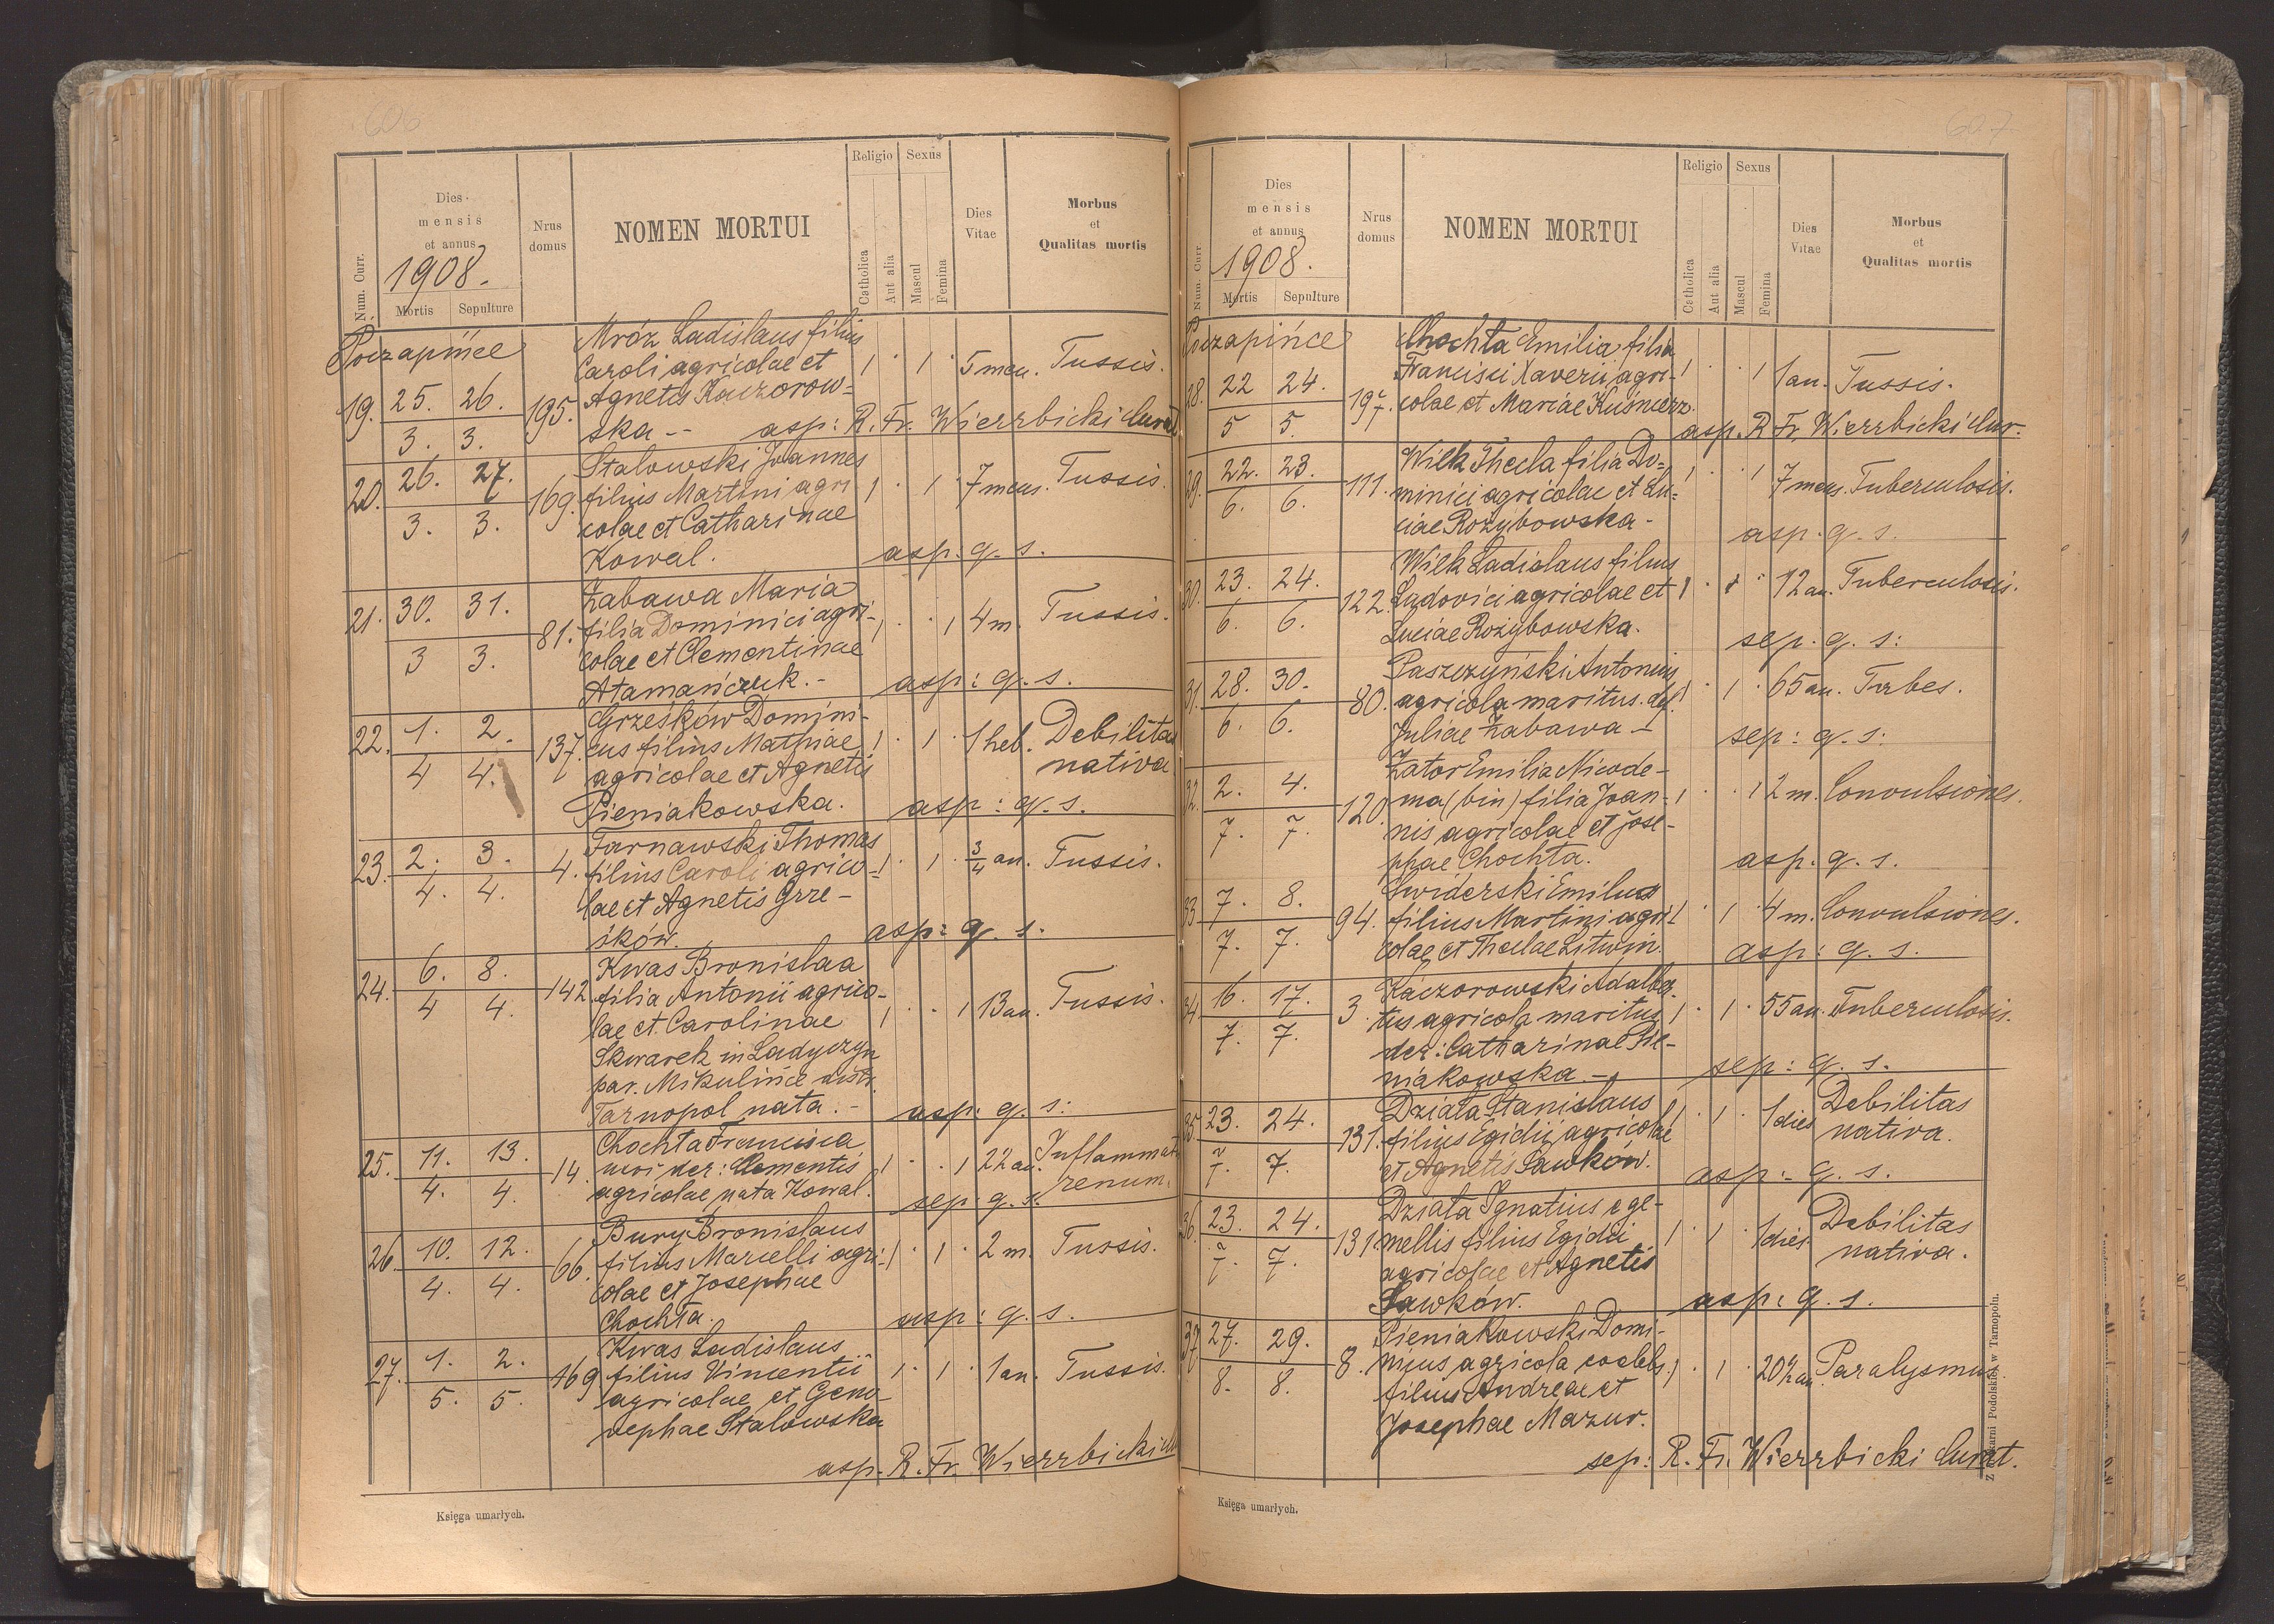 606
Num. Curr.
Dies mensis et annus
1908.
Mortis Sepulture
Nrus domus
NOMEN MORTUI
Religio
Catholica
Aut alia
Sexus
Mascul
Femina
Dies Vitae
Morbus et Qualitas mortis
Poczapińce
Mróz Ladislaus filius
Caroli agricolae et 1 · 1 · 5 men. Tussis.
19. 25. 26. 195. Agnetis Kaczorow-
3. 3. ska -- asp: R. Fr. Wierzbicki Curat
Stalowski Joannes
20. 26. 27. 169. filius Martini agri 1 · 1 · 7 mens. Tussis.
3. 3. colae et Catharinae
Kowal. asp. q. s.
Zabawa Maria
21. 30. 31. 81. filia Dominici agri- 1 · · 1 4 m. Tussis.
3 3. colae et Clementinae
Atamańczuk. - asp: q. s.
Grześków Domini-
22. 1. 2. 137. cus filius Mathiae 1 · 1 · 1 heb. Debilitas
4 4. agricolae et Agnetis nativa
Pieniakowska. asp: q. s.
Tarnawski Thomas
23. 2. 3. 4. filius Caroli agrico- 1 · 1 · 3/4 an. Tussis.
4. 4. lae et Agnetis Grze-
śków. asp: q. s.
Kwas Bronislaa
24. 6. 8. 142. filia Antonii agrico-
4 4. lae et Carolinae 1 · · 1 13 an. Tussis.
Skwarek in Ladyczyn
par. Mikulińce distr.
Tarnopol nata. - asp. q. s:
Chochta Francisca
25. 11. 13. 14. uxor der: Clementis 1 · · 1 22 an. Inflammat
4. 4. agricolae nata Kowal. sep: q. s. renum.
Bury Bronislaus
26. 10. 12. 66. filius Marcelli agri- 1 · 1 · 2 m. Tussis.
4. 4. colae et Josephae
Chochta. asp: q. s.
Kwas Ladislaus
27. 1. 2. 169 filius Vincentii 1 · 1 · 1 an. Tussis.
5. 5. agricolae et Geno-
vephae Stalowska
asp. R. Fr. Wierzbicki
Księga umarłych.
607
Num. Curr.
Dies mensis et annus
1908.
Mortis Sepulture
Nrus domus
NOMEN MORTUI
Religio
Catholica
Aut alia
Sexus
Mascul
Femina
Dies Vitae
Morbus et Qualitas mortis
Poczapińce
Chochta Emilia filia
28. 22 24. 197. Francisci Xaverii agri- 1 · · 1 1 an. Tussis.
5 5. colae et Mariae Kuśnierz.
asp. R. Fr. Wierzbicki Cur.
Wilk Thecla filia Do-
29. 22. 23. 111. minici agricolae et Lu- 1 · · 1 7 mens. Tuberculosis.
6. 6. ciae Rozybowska -
asp. q. s.
Wilk Ladislaus filius
30. 23. 24. 122. Ludovici agricolae et 1 · 1 · 12 an. Tuberculosis.
6. 6. Luciae Rożybowska.
sep. q. s:
Paszczyński Antonius
31. 28. 30. 80. agricola maritus. def. 1 · 1 · 65 an. Tabes.
6. 6. Juliae Zabawa - sep: q. s:
Zator Emilia Nicode-
32. 2. 4. 120. ma (bin) filia Joan- 1 · · 1 2 m. Convulsiones.
7. 7. nis agricolae et Jose-
phae Chochta. asp. q. s.
Swiderski Emilius
33. 7. 8. 94. filius Martini agri- 1 · 1 · 4 m. Convulsiones.
7. 7. colae et Theclae Litwin. asp: q. s.
Kaczorowski Adalber
34. 16. 17. 3. tus agricola maritus 1 · 1 · 55 an. Tuberculosis.
7. 7. der: Catharinae Pie-
niakowska. - sep: q. s.
Działa Stanislaus
35. 23. 24. 131. filius Egidii agricolae 1 · 1 · 1 dies Debilitas
7. 7. et Agnetis Sawków. nativa.
asp: q. s.
Działa Ignatius e ge-
36. 23. 24. 131 mellis filius Egidii 1 · 1 · 1 dies Debilitas
7. 7. agricolae et Agnetis nativa.
Sawków. asp: q. s.
Pieniakowski Domi-
37. 27. 29. 8. nicus agricola coelebs. 1 · 1 · 20 an. Paralysmus.
8. 8. filius Andreae et
Josephae Mazur.
sep: R. Fr. Wierzbicki Curat.
Księga umarłych.
Podolskiej w Tarnopolu.